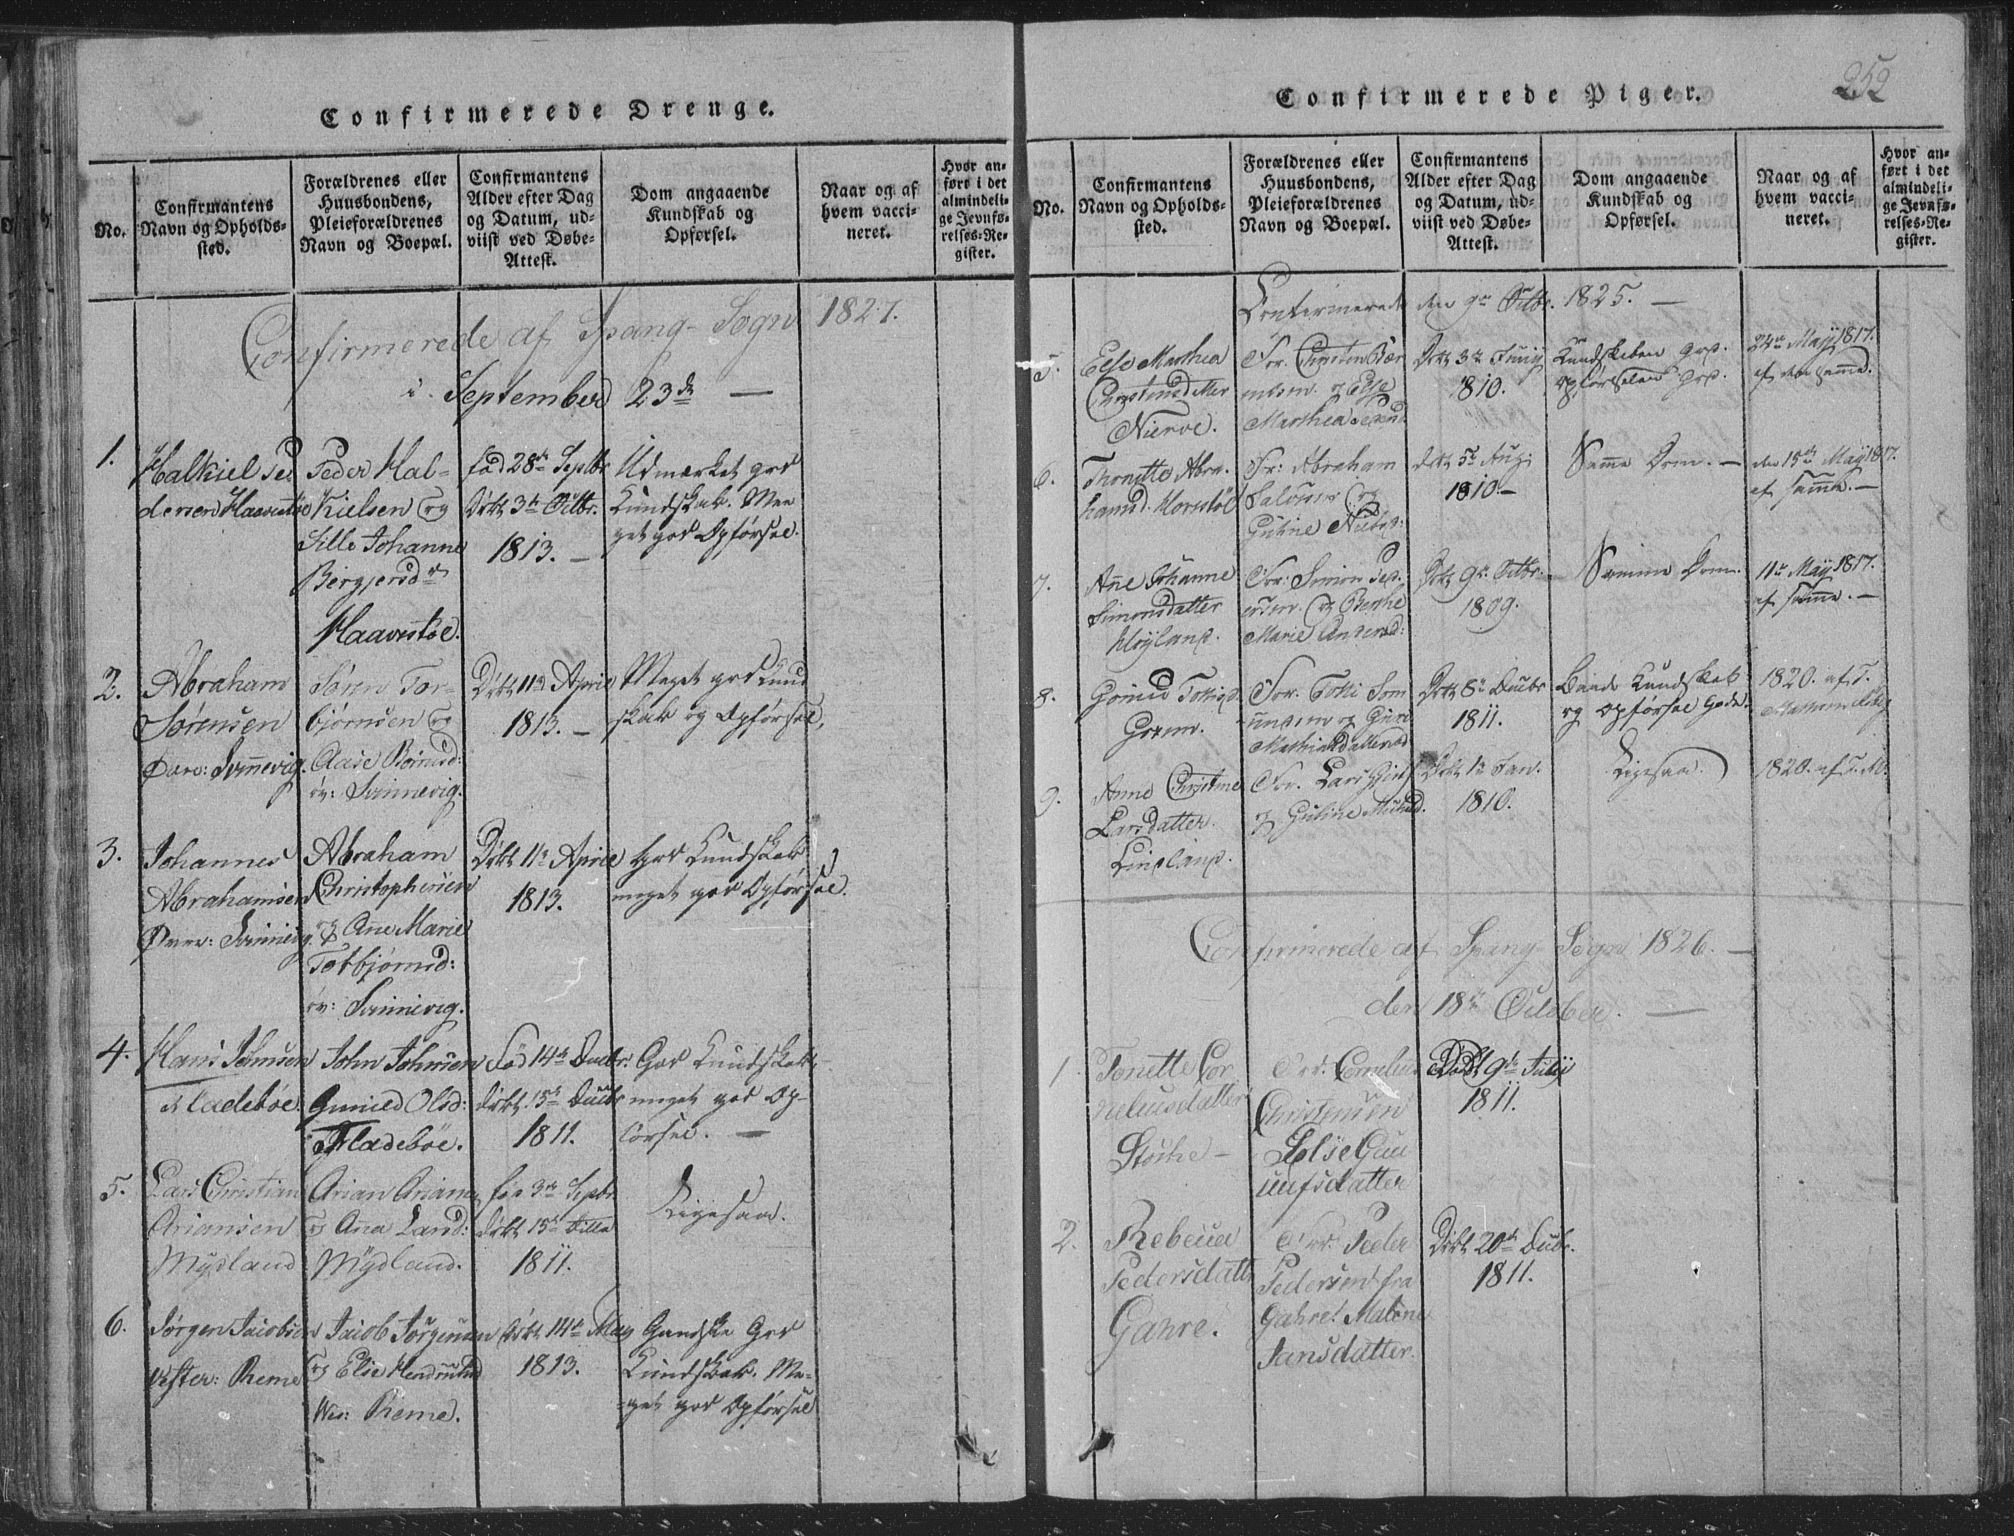 Confirmerede Drenge.
No.
Confirmantens
Navn og Opholds-
sted.
Forældrenes eller
Huusbondens,
Pleieforældrenes
Navn og Boepæl.
Confirmantens
Alder efter Dag
og Datum, ud-
viist ved Døbe-
Attest.
Dom angaaende
Kundskab og
Opførsel.
Naar og af
hvem vacci-
neret.
Hvor an-
ført i det
almindeli-
ge Jevnfø-
relses-Re-
gister.
Confirmerede af Spang-Sogn 1827.
i September 23de —
1.
Halkiel Pe
dersen Haavestøe
Peder Hal-
kielsen og
Sille Johanne
Bergjersdr
Haavestøe.
fød 28de Septbr
Døbt 3de Octbr.
1813. —
Udmærket god
Kundskab. Me
get god Opførsel.
2.
Abraham
Sørensen
Øvre: Svinnevig.
Søren Tor-
bjørnsen og
Aase
øv: Svinnevig.
Døbt 11te April
1813. —
Meget god Kund
skab og Opførsel,
3.
Johannes
Abrahamsen
Øvre: Svinnevig.
Abraham
Christophersen
og Ane Marie
Torbjørnsd:
øv: Svinnevig.
Døbt 11te April
1813.
God Kundskab
meget god Opførsel.
4.
Hans Johnsen
Fladebøe.
John Johnsen
Gunild Olsd:
Fladebøe.
Fød 14de Decbr.
Døbt. 15de Decbr
1811.
God Kundskab,
meget god Op-
førsel. —
5.
Lars Christian
Ariansen
Mydland
Arian Arians
og Ana Land:
Mydland.
fød 3de Septbr
døbt 15de
1811.
Ligesaa.
6.
Jørgen Jacobsen
Vester: Reme
Jacob Jørgensen
og Elie
Wes: Reme.
Døbt 14de May
1813.
Gandske God
Kundskab. Me-
get god Opførsel
Confirmerede Piger.
252
No.
Confirmantens
Navn og Opholds-
sted.
Forældrenes eller
Huusbondens,
Pleieforældrenes
Navn og Boepæl.
Confirmantens
Alder efter Dag
og Datum, ud-
viist ved Døbe-
Attest.
Dom angaaende
Kundskab og
Opførsel.
Naar og af
hvem vacci-
neret.
Hvor an-
ført i det
almindeli-
ge Jevnfø-
relses-Re-
gister.
Confirmerede den 9de Octbr. 1825. —
5.
Else Marthea
Christensdatter
For. Christen
og Else
Marthea
Døbt 3de Junij
1810.
Kundskaben god.
Opførselen god.
24de Maij 1817.
af den samme.
6.
Thonette Abra-
hamsd.
For: Abraham
Salvesen og
Døbt 5te Aug:
1810 —
Samme Dom. —
den 15de Maij 1817.
af samme. —
7.
Ane Johanne
Simonsdatter
Høyland.
For: Simon Ped
ersen. og Berthe
Marie Andersd:
Døbt 9de Octbr:
1809.
Samme Dom.
11te Maij 1817.
af samme. —
8.
For. Tobi
Døbt 8de Decbr
1811.
Baade Kundskab
og Opførsel gode.
1820. af T.
9.
Anne Christine
Larsdatter.
Lindland.
For. Lars
og Guline
Døbt 1te Jan.
1810.
Ligesaa.
1820. af T. M.
Confirmerede af Spang Sogn 1826. —
den 18de October. —
1.
Tonette Cor
neliusdatter
For: Cornelius
Christensen
Else Gun
ulfsdatter
Døbt 9de Julij
1811.
2.
Rebecca
Pedersdatter
Gahre.
For: Peder
Pedersen fra
Gahre. Malene
Jansdatter.
Døbt 20de Decbr.
1811.